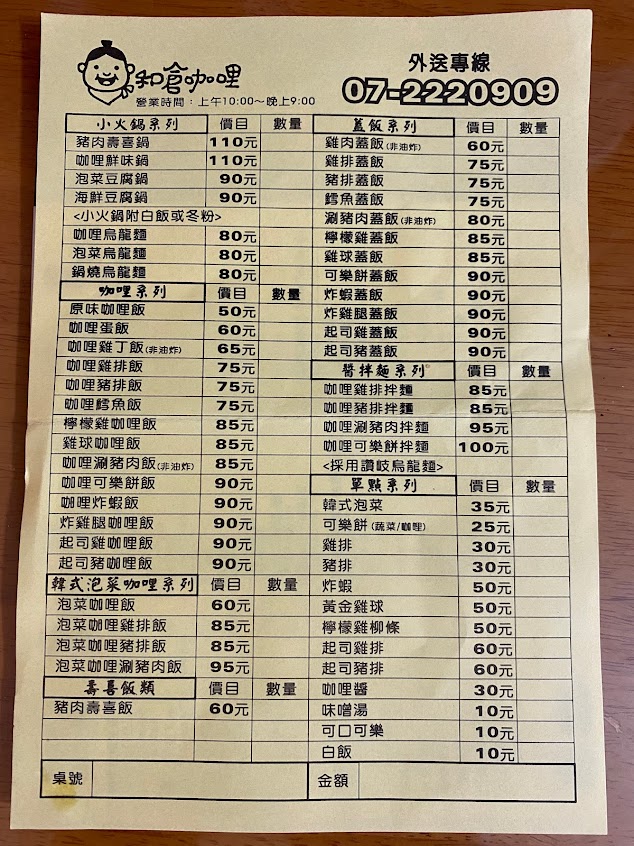 和倉咖哩
營業時間：上午10:00～晚上9:00
外送專線
07-2220909
小火鍋系列 價目 數量
豬肉壽喜鍋 110元
咖哩鮮味鍋 110元
泡菜豆腐鍋 90元
海鮮豆腐鍋 90元
<小火鍋附白飯或冬粉>
咖哩烏龍麵 80元
泡菜烏龍麵 80元
鍋燒烏龍麵 80元
咖哩系列 價目 數量
原味咖哩飯 50元
咖哩蛋飯 60元
咖哩雞丁飯(非油炸) 65元
咖哩雞排飯 75元
咖哩豬排飯 75元
咖哩鱈魚飯 75元
檸檬雞咖哩飯 85元
雞球咖哩飯 85元
咖哩涮豬肉飯(非油炸) 85元
咖哩可樂餅飯 90元
咖哩炸蝦飯 90元
炸雞腿咖哩飯 90元
起司雞咖哩飯 90元
起司豬咖哩飯 90元
韓式泡菜咖哩系列 價目 數量
泡菜咖哩飯 60元
泡菜咖哩雞排飯 85元
泡菜咖哩豬排飯 85元
泡菜咖哩涮豬肉飯 95元
壽喜飯類 價目 數量
豬肉壽喜飯 60元
蓋飯系列 價目 數量
雞肉蓋飯(非油炸) 60元
雞排蓋飯 75元
豬排蓋飯 75元
鱈魚蓋飯 75元
涮豬肉蓋飯(非油炸) 80元
檸檬雞蓋飯 85元
雞球蓋飯 85元
可樂餅蓋飯 90元
炸蝦蓋飯 90元
炸雞腿蓋飯 90元
起司雞蓋飯 90元
起司豬蓋飯 90元
醬拌麵系列 價目 數量
咖哩雞排拌麵 85元
咖哩豬排拌麵 85元
咖哩涮豬肉拌麵 95元
咖哩可樂餅拌麵 100元
<採用讚岐烏龍麵>
單點系列 價目 數量
韓式泡菜 35元
可樂餅(蔬菜/咖哩) 25元
雞排 30元
豬排 30元
炸蝦 50元
黃金雞球 50元
檸檬雞柳條 50元
起司雞排 60元
起司豬排 60元
咖哩醬 30元
味噌湯 10元
可口可樂 10元
白飯 10元
桌號
金額